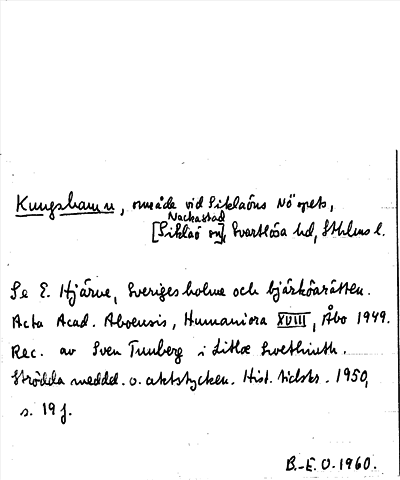 Kungshamn, område vid Sicklaöns NÖ spets,
Nackastad
[Sicklaö sn], Svartlösa hd, Sthlms l.
Se E. Hjärne, Sveriges holme och bjärköarätten.
Acta Acad. Aboensis, Humaniora XVIII, Åbo 1949.
Rec. av Sven Tunberg i Litlæ Swethiuth.
Strödda medd. o. aktstycken. Hist. tidskr. 1950,
s. 19 f.
B.-E. O. 1960.